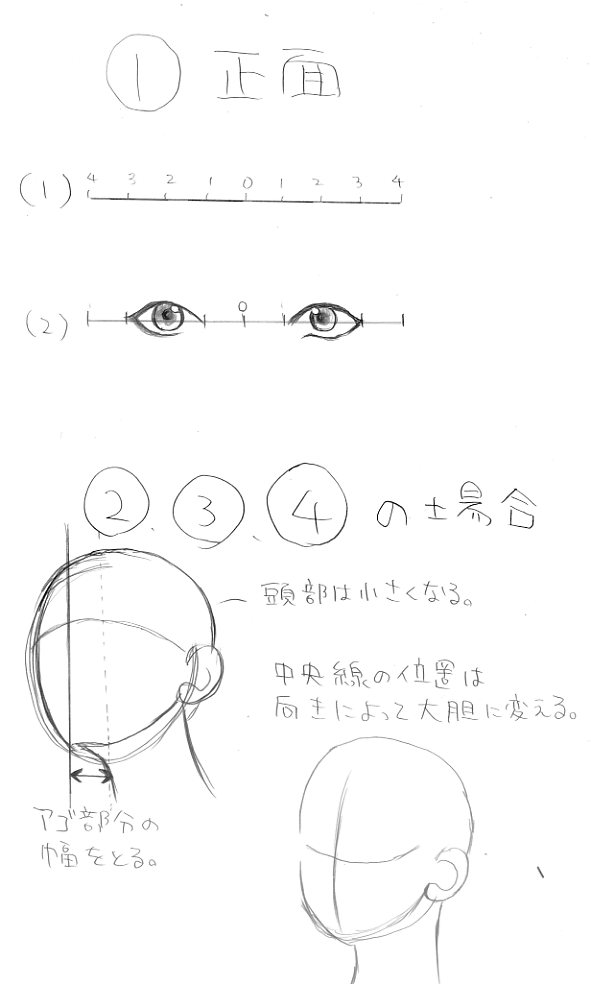 ① 正面
(1) 4 3 2 1 0 1 2 3 4
(2) 0
②、③、④の場合
頭部は小さくなる。
中央線の位置は
向きによって大胆に変える。
アゴ部分の
幅をとる。